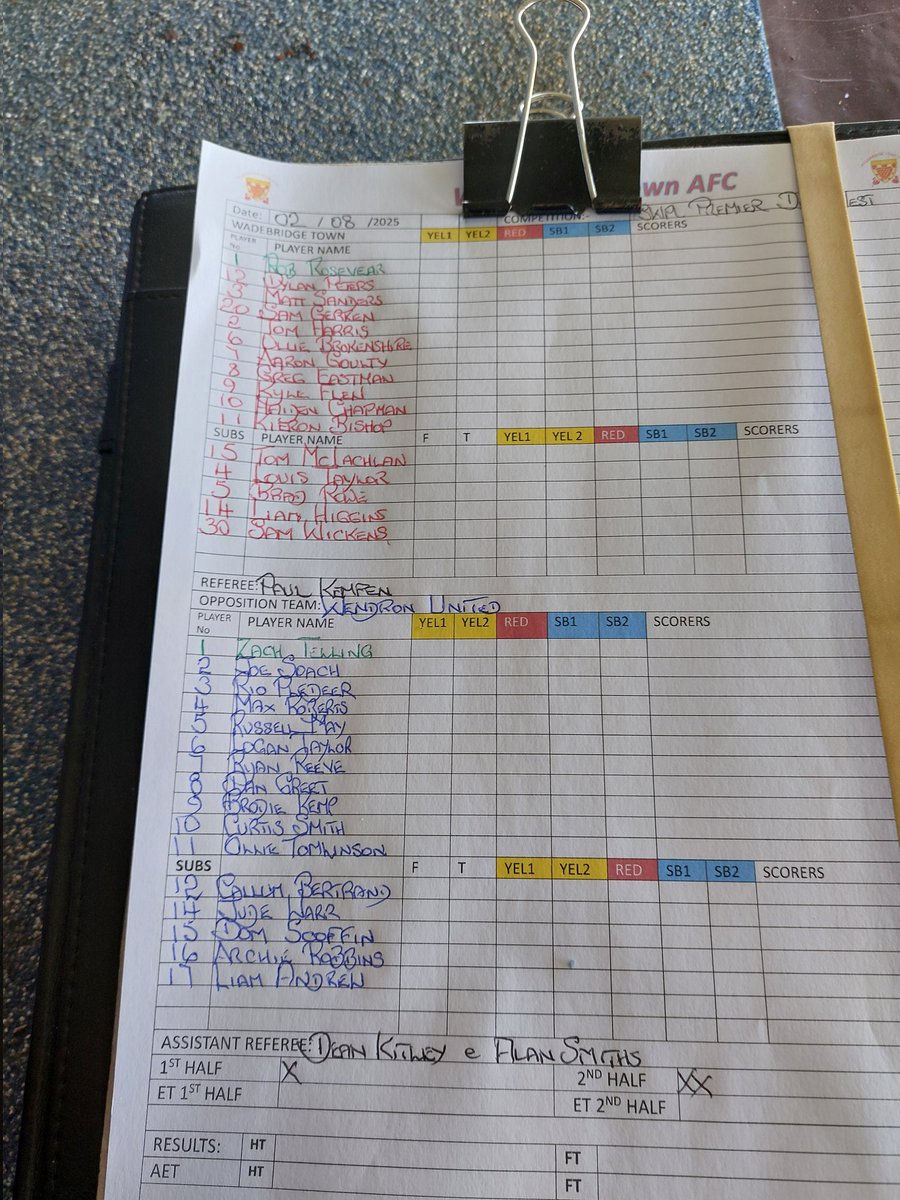 wn AFC
Date: 02 / 08 /2025 COMPETITION:- SKIPL PREMIER D EST
WADEBRIDGE TOWN YEL1 YEL2 RED SB1 SB2 SCORERS
PLAYER No. PLAYER NAME
1 ROB ROSEVEAR
12 DYLAN PETERS
3 MATT SANDERS
20 SAM GERKEN
2 TOM HARRIS
6 OLLIE BROKENSHIRE
7 AARON GOULTY
8 GREG EASTMAN
9 KYLE FLEN
10 HAIDEN CHAPMAN
11 KIERON BISHOP
SUBS PLAYER NAME F T YEL1 YEL 2 RED SB1 SB2 SCORERS
15 TOM MCLACHLAN
4 LOUIS TAYLOR
5 BRAD ROWE
14 LIAM HIGGINS
30 SAM WICKENS
REFEREE: PAUL KEMPEN
OPPOSITION TEAM: WENDRON UNITED
PLAYER No PLAYER NAME YEL1 YEL2 RED SB1 SB2 SCORERS
1 ZACH TELLING
2 JOE SOACH
3 RIO PLEDEER
4 MAX ROBERTS
5 RUSSELL MAY
6 LOGAN TAYLOR
7 RYAN REEVE
8 DAN GREET
9 BRODIE KEMP
10 CURTIS SMITH
11 OLLIE TOMLINSON
SUBS F T YEL1 YEL2 RED SB1 SB2 SCORERS
12 CALLUM BERTRAND
14 JUDE WARR
15 DOM SCOFFIN
16 ARCHIE ROBBINS
17 LIAM ANDREW
ASSISTANT REFEREE: DEAN KITLEY e ALAN SMITHS
1ST HALF X 2ND HALF XX
ET 1ST HALF ET 2ND HALF
RESULTS: HT FT
AET HT FT